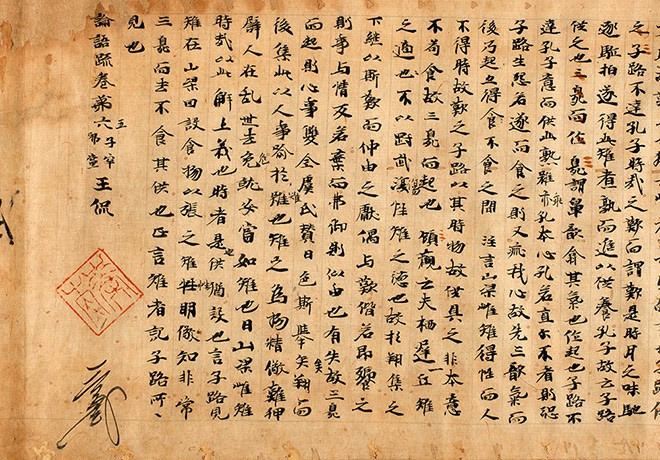 之子路不達孔子時哉之歎而謂歎是時月之味馳
逐驅拍遂得此雉者熟而進以供養孔子故云子路
供之也三臭而作臭謂鼻歆翕其氣也作起也子路不
達孔子意而供此熟雉乖孔本心孔若直尒不者則恐
子路生怨若遂而食之則又乖我心故先三歎氣而
後乃起立得食不食之間 注言山梁雌雉得性而人
不得時故歎之子路以其時物故供具之非本意
不苟食故三臭而起也 顧觀云夫栖遲一丘雉
之適也不以剛武傷性雉之德也故於翔集之
下継以斯歎而仲由之獻偶与歎偕若即饗之
則事与情反若棄而弗御則似由也有失故三臭
而起則心事雙合虞氏贊曰色斯舉矣翔而
後集此以人事喻於雉也雉之為物精儆難狎
譬人在乱世去危就安當如雉也曰山梁雌雉
時哉以此解上義也時者是也供猶設也言子路見
雉在山梁因設食物以張之雉性明儆知非常
三臭而去不食其供也正言雌者記子路所
見也
論語疏卷第六 王侃